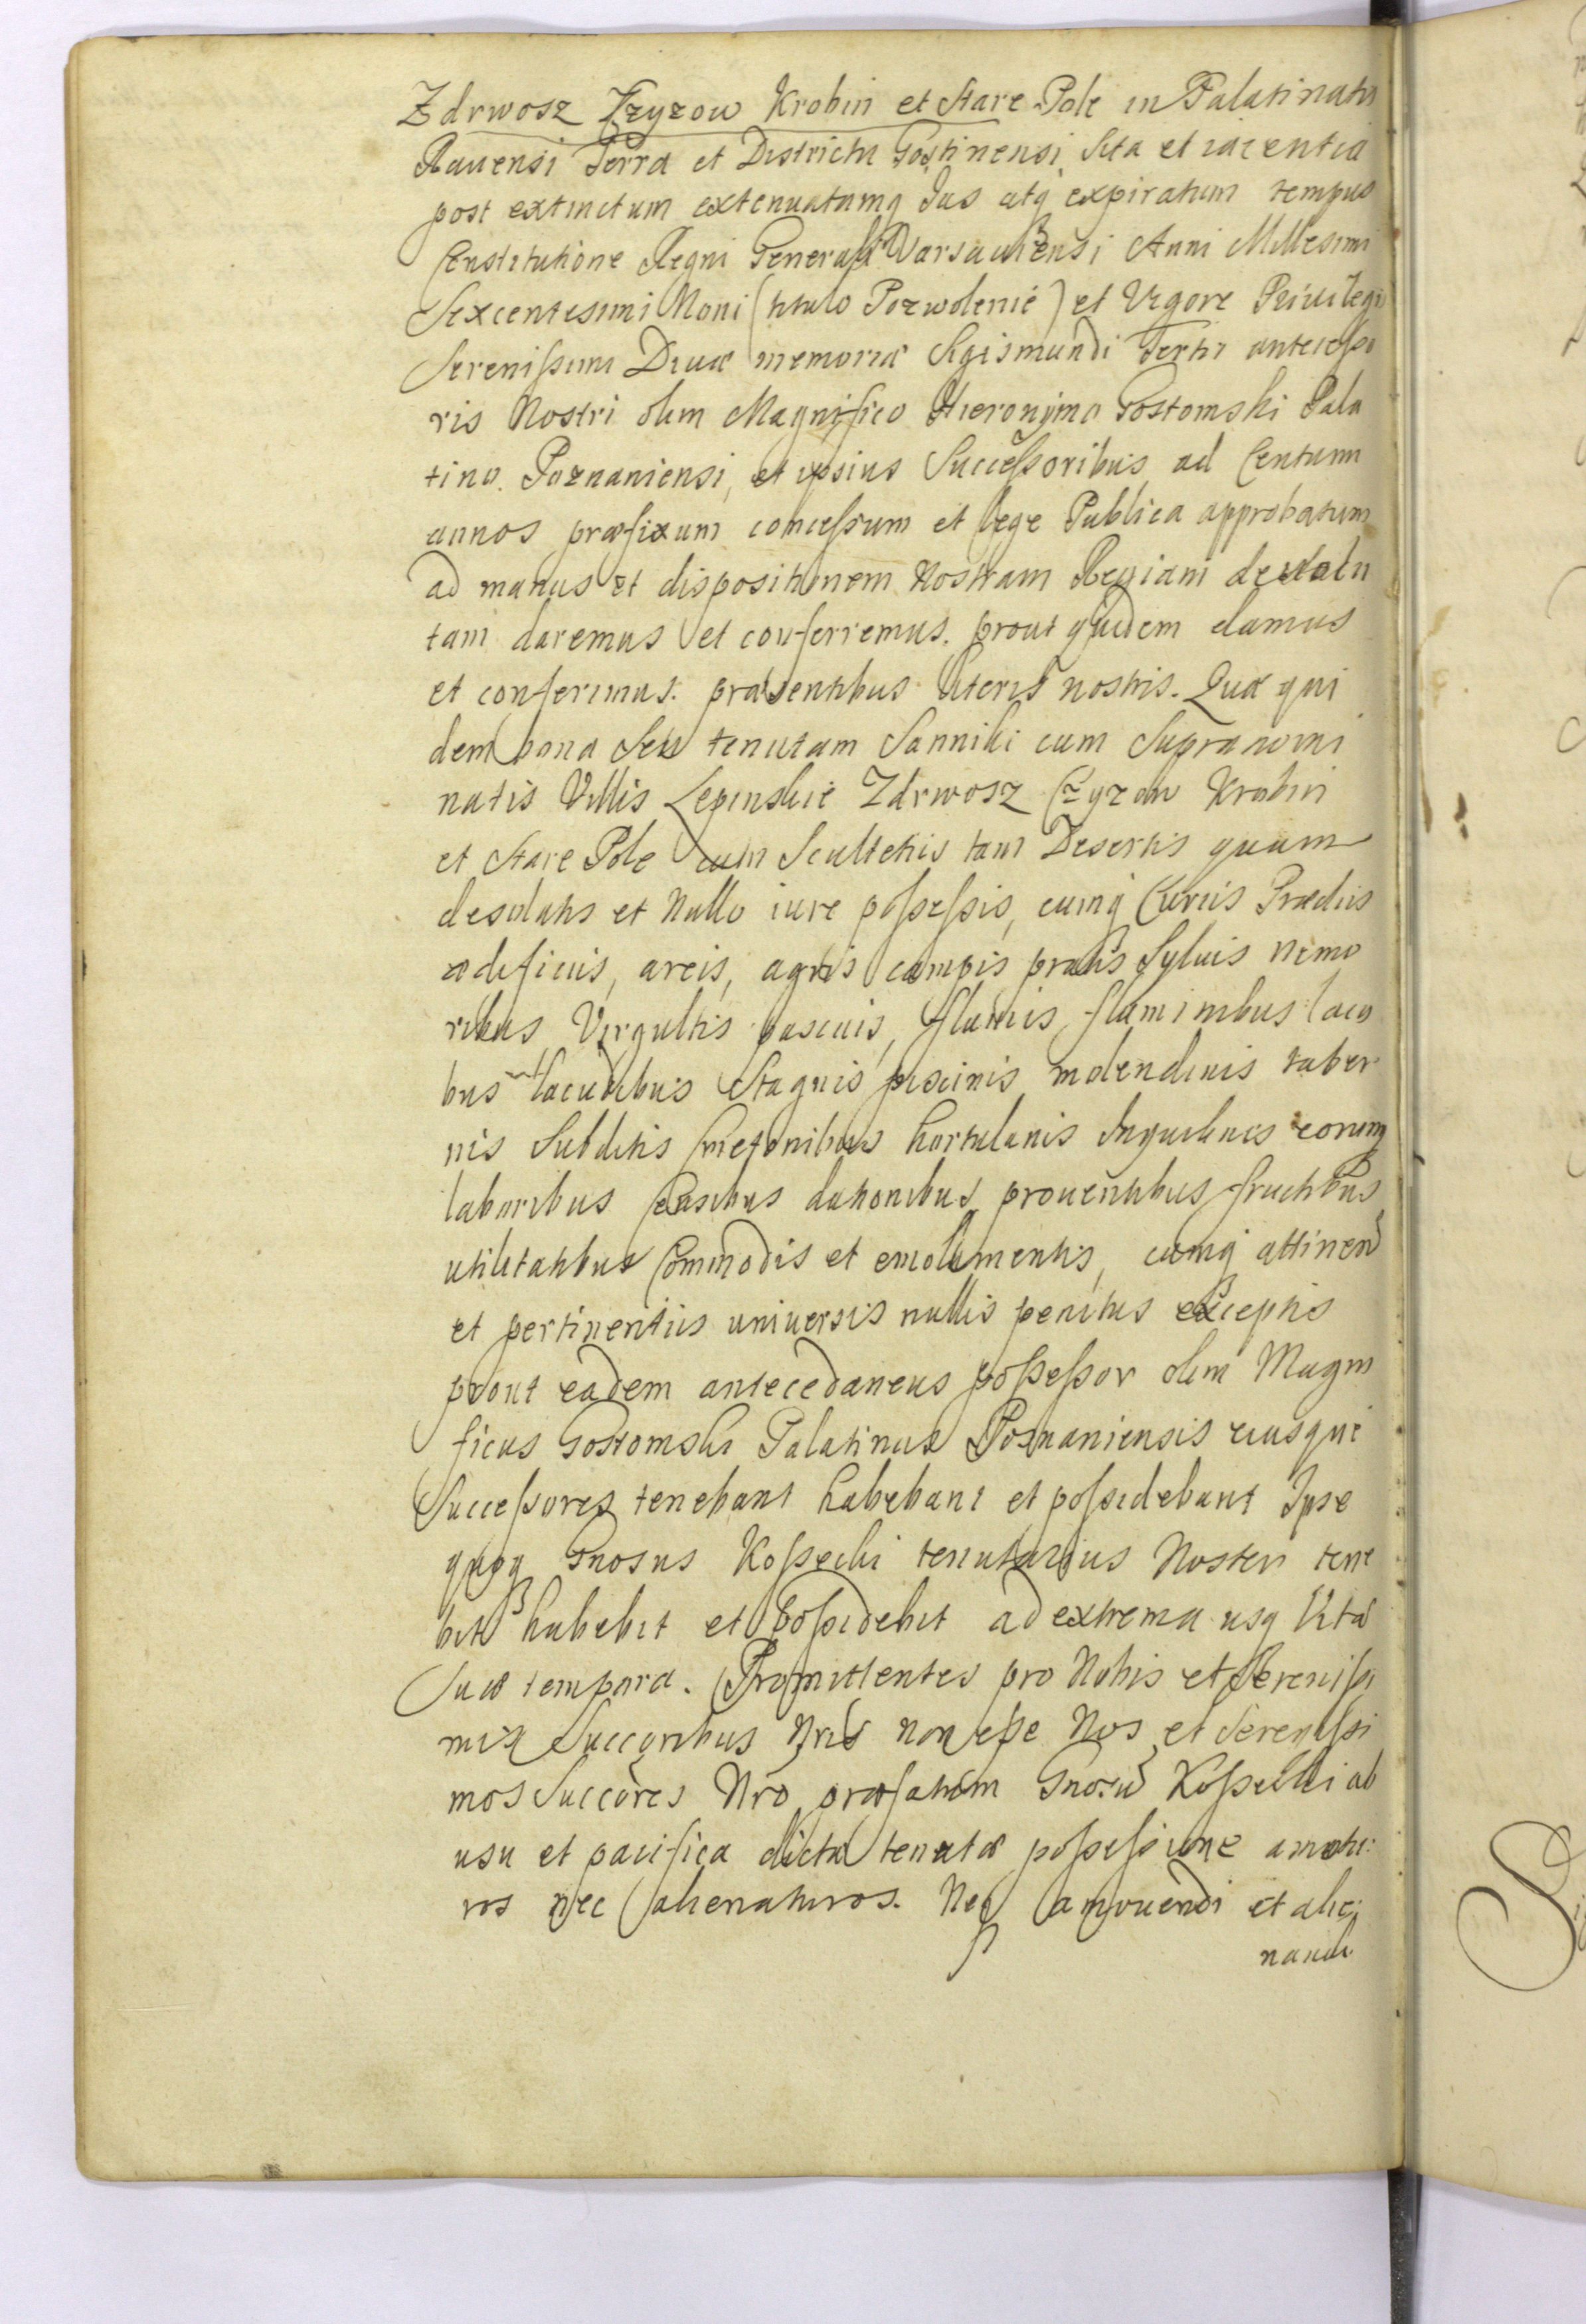 Zdrwosz Czyzow Krobin et Stare Pole in Palatinatu
Rauensi Terra et Districtu Gostinensi Sita et iacentia
post extinctum extenuatumq Jus atq expiratum tempus
Constitutione Regni Generali Varsauiensi Anni Millesimi
Sexcentesimi Noni (titulo Pozwolenie) et Vigore Priuilegi
Serenissimi Diuæ memoriæ Sigismundi Tertii antecesso
ris Nostri olim Magnifico Hieronijmo Gostomski Pala
tino Poznaniensi, et ipsius Successoribus ad Centum
annos præfixum concessum et lege Publica approbatum
ad manus et dispositionem Nostram Regiam deuolu
tam daremus et conferremus. prout quidem damus
et conferimus. præsentibus literis nostris. Quæ qui
dem bona Seu tenutam Sanniki cum Supranomi
natis Villis Lepinskie Zdrwosz Czyzow Krobin
et Stare Pole cum Scultetiis tam Desertis quam
desolatis et Nullo iure possessis, cumq Curiis Prædiis
ædificiis, areis, agris campis pratis Syluis nemo
ribus Virgultis pascuis, fluuiis fluminibus lacu
bus lacubibus Stagnis piscinis molendinis taber
nis Subditis Cmetonibus hortulanis Inquilinis eorumq
laboribus Censibus dationibus prouentibus fructibus
utilitatibus Commodis et emolumentis, cumq attinen
et pertinentiis uniuersis nullis penitus exceptis
prout eadem antecedaneus possessor olim Magni
ficus Gostomski Palatinus Posnaniensis eiusque
Successores tenebant habebant et possidebant Ipse
quoq Gnosus Kossecki tenutarius Noster tene
bit habebit et possidebit ad extrema usq Vitæ
suæ tempora. Promittentes pro Nobis et Serenissi
misq Succoribus Nris non esse Nos et Serenissi
mos Succores Nro præfatum Gnosu Kossecki ab
usu et pacifica dictæ tenutæ possessione amotu:
ros nec alienaturos. Neq amouendi et alie:
nandi